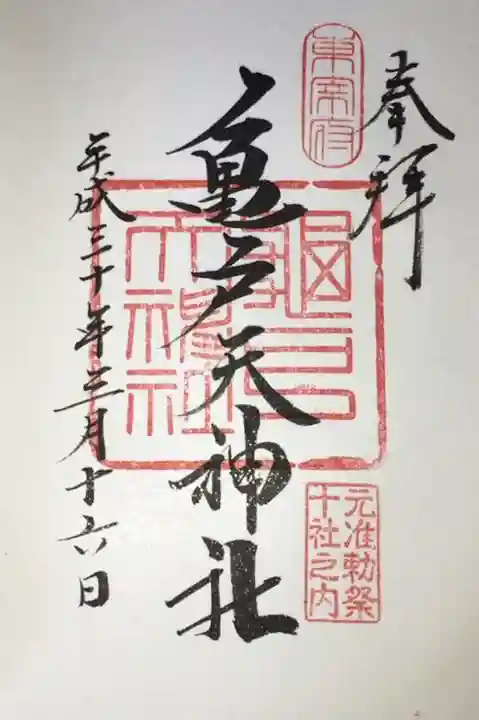 奉拝
東宰府
亀戸天神社
亀戸天神社
元准勅祭
十社之内
平成三十年三月十六日